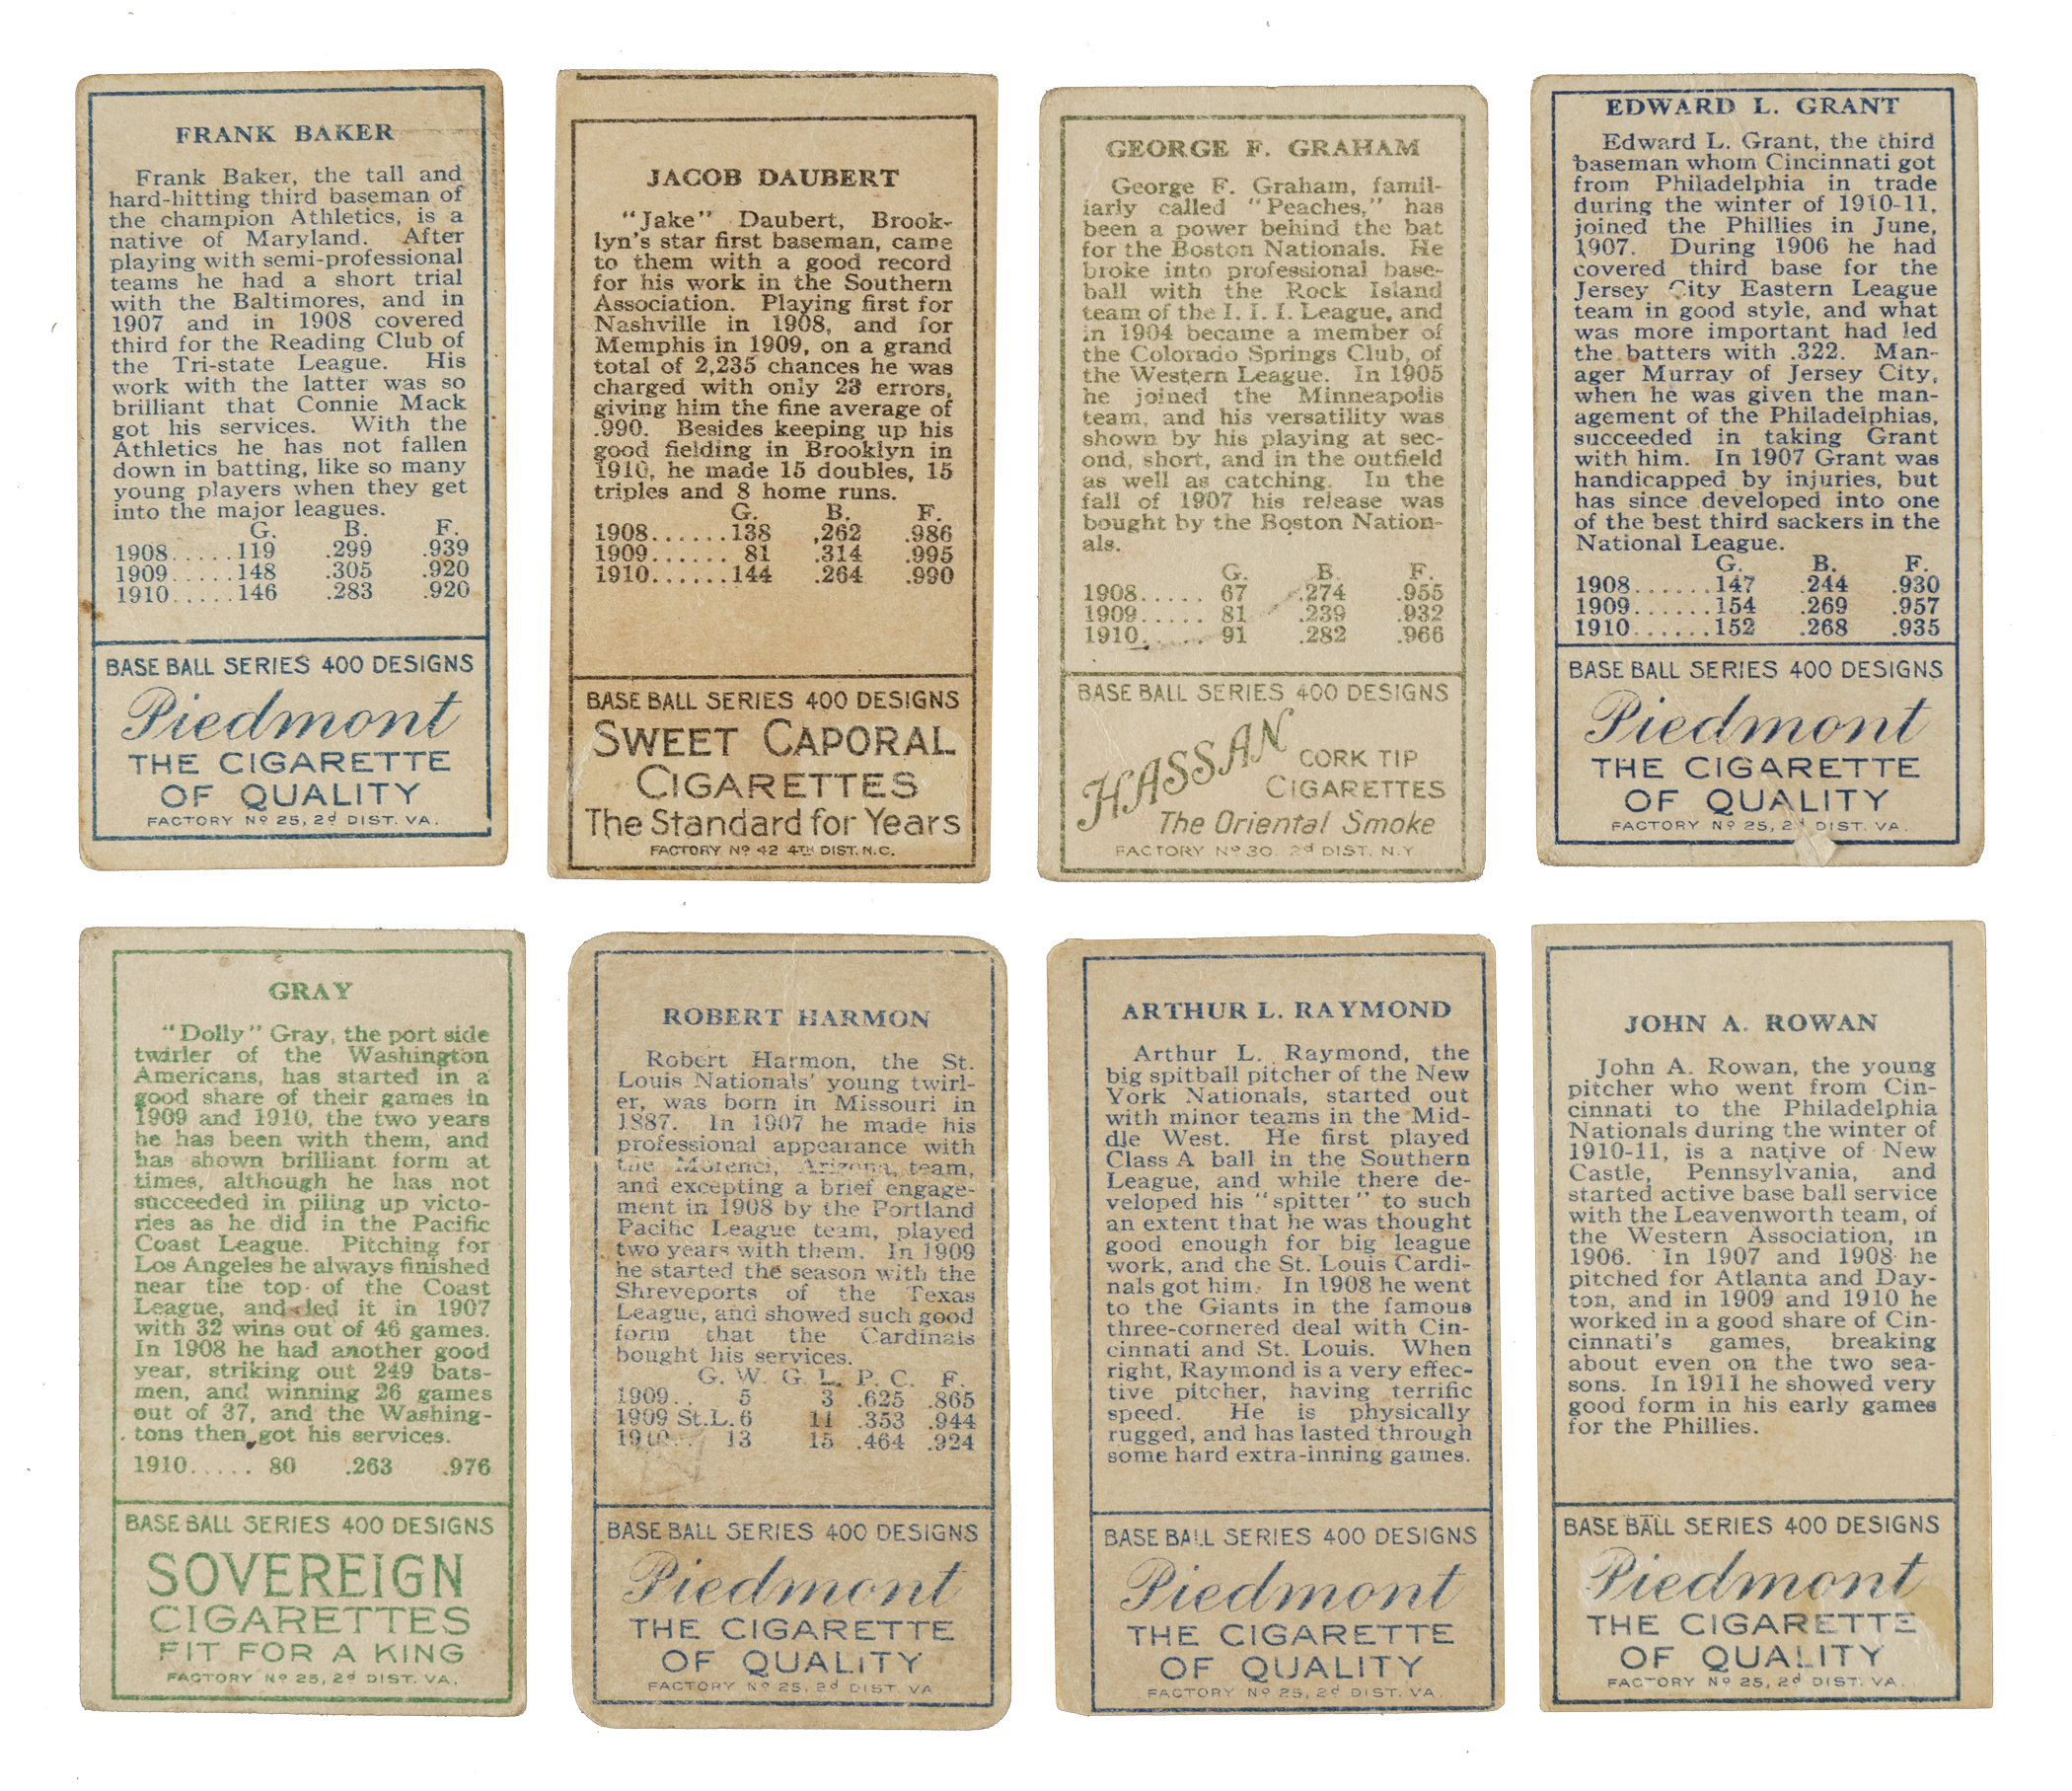 FRANK BAKER
Frank Baker, the tall and
hard-hitting third baseman of
the champion Athletics, is a
native of Maryland. After
playing with semi-professional
teams he had a short trial
with the Baltimores, and in
1907 and in 1908 covered
third for the Reading Club of
the Tri-state League. His
work with the latter was so
brilliant that Connie Mack
got his services. With the
Athletics he has not fallen
down in batting, like so many
young players when they get
into the major leagues.
G. B. F.
1908.....119 .299 .939
1909.....148 .305 .920
1910.....146 .283 .920
BASE BALL SERIES 400 DESIGNS
Piedmont
THE CIGARETTE
OF QUALITY
FACTORY Nº 25, 2d DIST. VA.
JACOB DAUBERT
"Jake" Daubert, Brook-
lyn's star first baseman, came
to them with a good record
for his work in the Southern
Association. Playing first for
Nashville in 1908, and for
Memphis in 1909, on a grand
total of 2,235 chances he was
charged with only 23 errors,
giving him the fine average of
.990. Besides keeping up his
good fielding in Brooklyn in
1910, he made 15 doubles, 15
triples and 8 home runs.
G. B. F.
1908......138 .262 .986
1909...... 81 .314 .995
1910......144 .264 .990
BASE BALL SERIES 400 DESIGNS
SWEET CAPORAL
CIGARETTES
The Standard for Years
FACTORY Nº 42 4TH DIST. N.C.
GEORGE F. GRAHAM
George F. Graham, famil-
iarly called "Peaches," has
been a power behind the bat
for the Boston Nationals. He
broke into professional base-
ball with the Rock Island
team of the I. I. I. League, and
in 1904 became a member of
the Colorado Springs Club, of
the Western League. In 1905
he joined the Minneapolis
team, and his versatility was
shown by his playing at sec-
ond, short, and in the outfield
as well as catching. In the
fall of 1907 his release was
bought by the Boston Nation-
als.
G. B. F.
1908..... 67 .274 .955
1909..... 81 .239 .932
1910..... 91 .282 .966
BASE BALL SERIES 400 DESIGNS
HASSAN CORK TIP
CIGARETTES
The Oriental Smoke
FACTORY Nº 30. 2d DIST. N.Y.
EDWARD L. GRANT
Edward L. Grant, the third
baseman whom Cincinnati got
from Philadelphia in trade
during the winter of 1910-11,
joined the Phillies in June,
1907. During 1906 he had
covered third base for the
Jersey City Eastern League
team in good style, and what
was more important had led
the batters with .322. Man-
ager Murray of Jersey City,
when he was given the man-
agement of the Philadelphias,
succeeded in taking Grant
with him. In 1907 Grant was
handicapped by injuries, but
has since developed into one
of the best third sackers in the
National League.
G. B. F.
1908.......147 .244 .930
1909.......154 .269 .957
1910.......152 .268 .935
BASE BALL SERIES 400 DESIGNS
Piedmont
THE CIGARETTE
OF QUALITY
FACTORY Nº 25, 2d DIST. VA.
GRAY
"Dolly" Gray, the port side
twirler of the Washington
Americans, has started in a
good share of their games in
1909 and 1910, the two years
he has been with them, and
has shown brilliant form at
times, although he has not
succeeded in piling up victo-
ries as he did in the Pacific
Coast League. Pitching for
Los Angeles he always finished
near the top of the Coast
League, and led it in 1907
with 32 wins out of 46 games.
In 1908 he had another good
year, striking out 249 bats-
men, and winning 26 games
out of 37, and the Washing-
tons then got his services.
1910..... 80 .263 .976
BASE BALL SERIES 400 DESIGNS
SOVEREIGN
CIGARETTES
FIT FOR A KING
FACTORY Nº 25, 2d DIST. VA.
ROBERT HARMON
Robert Harmon, the St.
Louis Nationals' young twirl-
er, was born in Missouri in
1887. In 1907 he made his
professional appearance with
the Morenci, Arizona, team,
and excepting a brief engage-
ment in 1908 by the Portland
Pacific League team, played
two years with them. In 1909
he started the season with the
Shreveports of the Texas
League, and showed such good
form that the Cardinals
bought his services.
G. W. G. L. P. C. F.
1909.. 5 3 .625 .865
1909 St.L. 6 11 .353 .944
1910... 13 15 .464 .924
BASE BALL SERIES 400 DESIGNS
Piedmont
THE CIGARETTE
OF QUALITY
FACTORY Nº 25, 2d DIST. VA
ARTHUR L. RAYMOND
Arthur L. Raymond, the
big spitball pitcher of the New
York Nationals, started out
with minor teams in the Mid-
dle West. He first played
Class A ball in the Southern
League, and while there de-
veloped his "spitter" to such
an extent that he was thought
good enough for big league
work, and the St. Louis Cardi-
nals got him. In 1908 he went
to the Giants in the famous
three-cornered deal with Cin-
cinnati and St. Louis. When
right, Raymond is a very effec-
tive pitcher, having terrific
speed. He is physically
rugged, and has lasted through
some hard extra-inning games.
BASE BALL SERIES 400 DESIGNS
Piedmont
THE CIGARETTE
OF QUALITY
FACTORY Nº 25, 2d DIST. VA.
JOHN A. ROWAN
John A. Rowan, the young
pitcher who went from Cin-
cinnati to the Philadelphia
Nationals during the winter of
1910-11, is a native of New
Castle, Pennsylvania, and
started active base ball service
with the Leavenworth team, of
the Western Association, in
1906. In 1907 and 1908 he
pitched for Atlanta and Day-
ton, and in 1909 and 1910 he
worked in a good share of Cin-
cinnati's games, breaking
about even on the two sea-
sons. In 1911 he showed very
good form in his early games
for the Phillies.
BASE BALL SERIES 400 DESIGNS
Piedmont
THE CIGARETTE
OF QUALITY
FACTORY Nº 25, 2d DIST. VA.